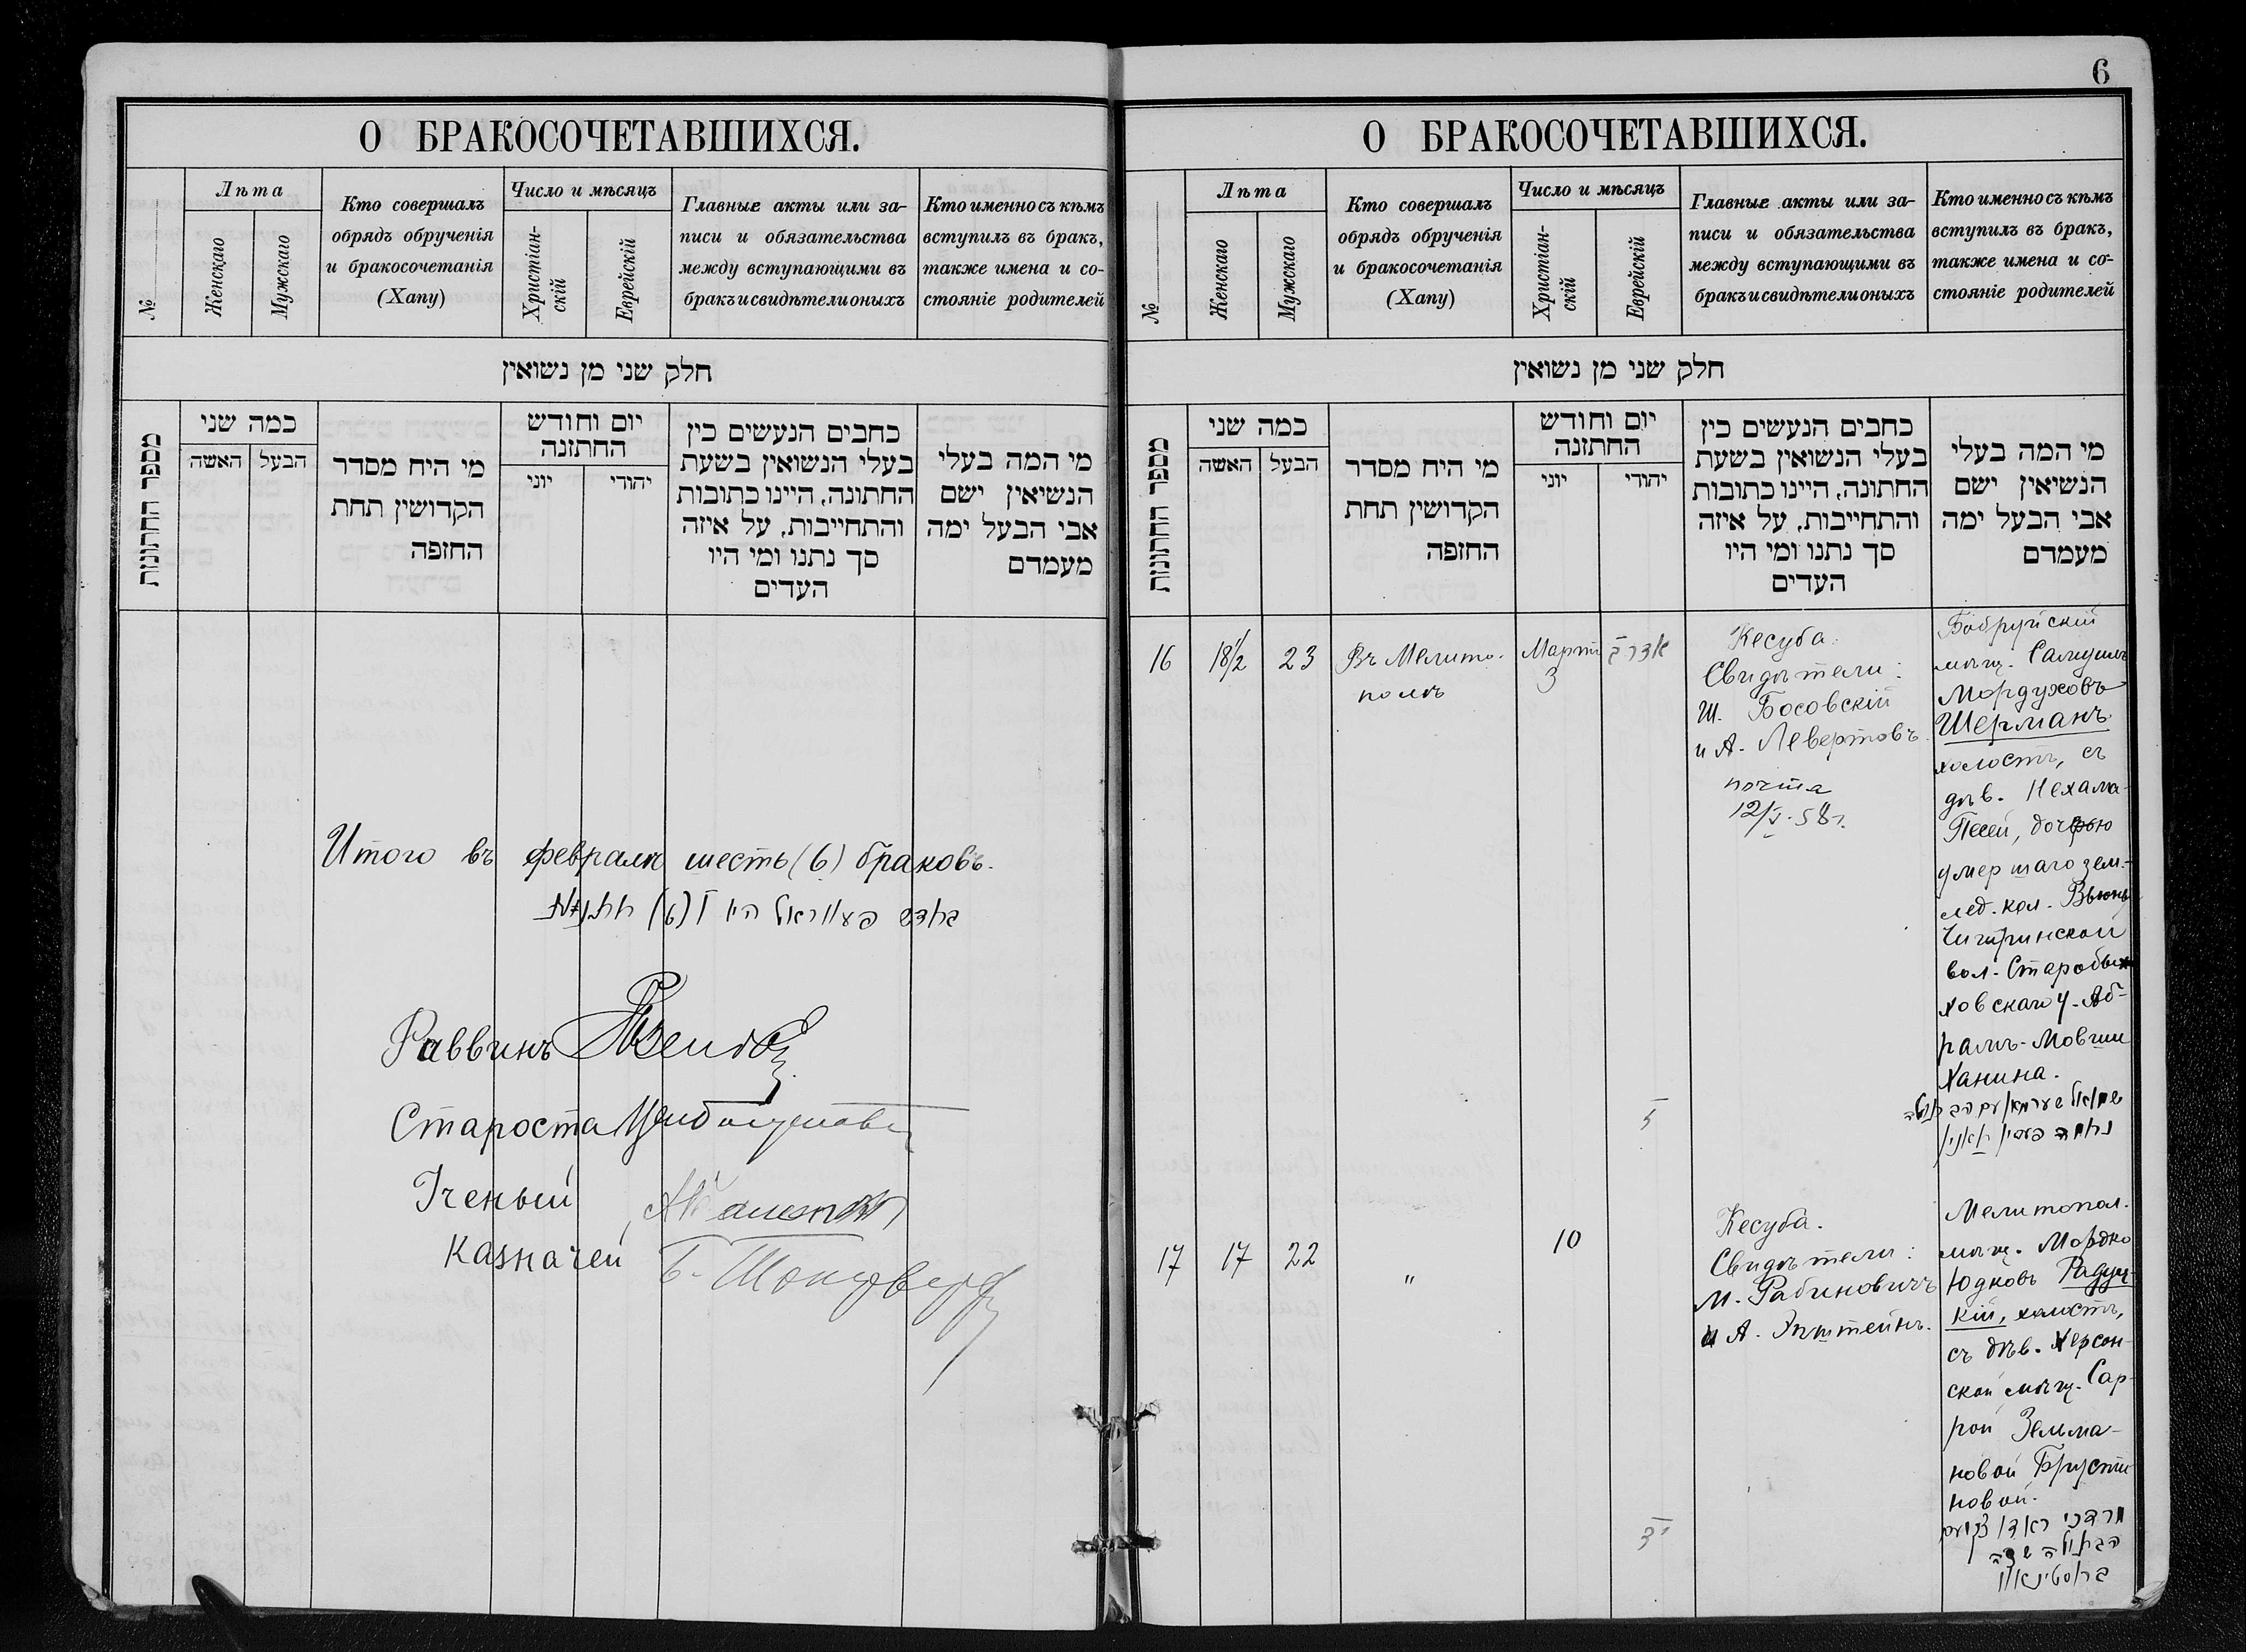 О БРАКОСОЧЕТАВШИХСЯ.
№
Лѣта
Женскаго
Мужскаго
Кто совершалъ
обрядъ обрученія
и бракосочетанія
(Хапу)
Число и мѣсяцъ
Христіан-
скій
Еврейскій
Главные акты или за-
писи и обязательства
между вступающими въ
бракъ и свидѣтели оныхъ
Кто именно съ кѣмъ
вступилъ въ бракъ,
также имена и со-
стояніе родителей
חלק שני מן נשואין
מספר החתונות
כמה שני
האשה
הבעל
מי היח מסדר
הקדושין תחת
החזפה
יום וחודש
החתזנה
יוני
יהודי
כחבים הנעשים כין
בעלי הנשואין בשעת
החתונה, היינו כתובות
והתחייבות, על איזה
סך נתנו ומי היו
העדים
מי המה בעלי
הנשיאין ישם
אבי הבעל ימה
מעמדם
Итого въ февралѣ шесть (6) браковъ.
בחדש פעווראל היו ו (6) חתנות
Раввинъ
Староста
Ученый
Казначей
6
О БРАКОСОЧЕТАВШИХСЯ.
№
Лѣта
Женскаго
Мужскаго
Кто совершалъ
обрядъ обрученія
и бракосочетанія
(Хапу)
Число и мѣсяцъ
Христіан-
скій
Еврейскій
Главные акты или за-
писи и обязательства
между вступающими въ
бракъ и свидѣтели оныхъ
Кто именно съ кѣмъ
вступилъ въ бракъ,
также имена и со-
стояніе родителей
חלק שני מן נשואין
מספר החתונות
כמה שני
האשה
הבעל
מי היח מסדר
הקדושין תחת
החזפה
יום וחודש
החתזנה
יוני
יהודי
כחבים הנעשים כין
בעלי הנשואין בשעת
החתונה, היינו כתובות
והתחייבות, על איזה
סך נתנו ומי היו
העדים
מי המה בעלי
הנשיאין ישם
אבי הבעל ימה
מעמדם
16
18½
23
Въ Мелито-
полѣ
Мартъ
3
אדר ב
ז
Кесуба.
Свидѣтели:
Ш. Босовскій
и А. Левертовъ.
почта
12/I.58г.
Бобруйскій
мѣщ. Самуилъ
Мордуховъ
Шерманъ.
холостъ, съ
дѣв. Нехама-
Песей, дочерью
умершаго зем-
лед. кол. Вьюнъ
Чигиринской
вол. Старобы-
ховскаго у. Аб-
рамъ-Мовши
Ханина.
שמואל שערמאן עם הבתולה
נחמה פעסי חאנין
17
17
22
"
10
יד
Кесуба.
Свидѣтели:
М. Рабиновичъ
и А. Эпштейнъ.
Мелитопол.
мѣщ. Мордко
Юдковъ Радун-
кій, холостъ,
съ дѣв. Херсон-
ской мѣщ. Сар-
рой Зельма-
новой Брусти-
новой.
מרדכי ראדונצקי עם
הבתולה שרה
ברוסטינאוו